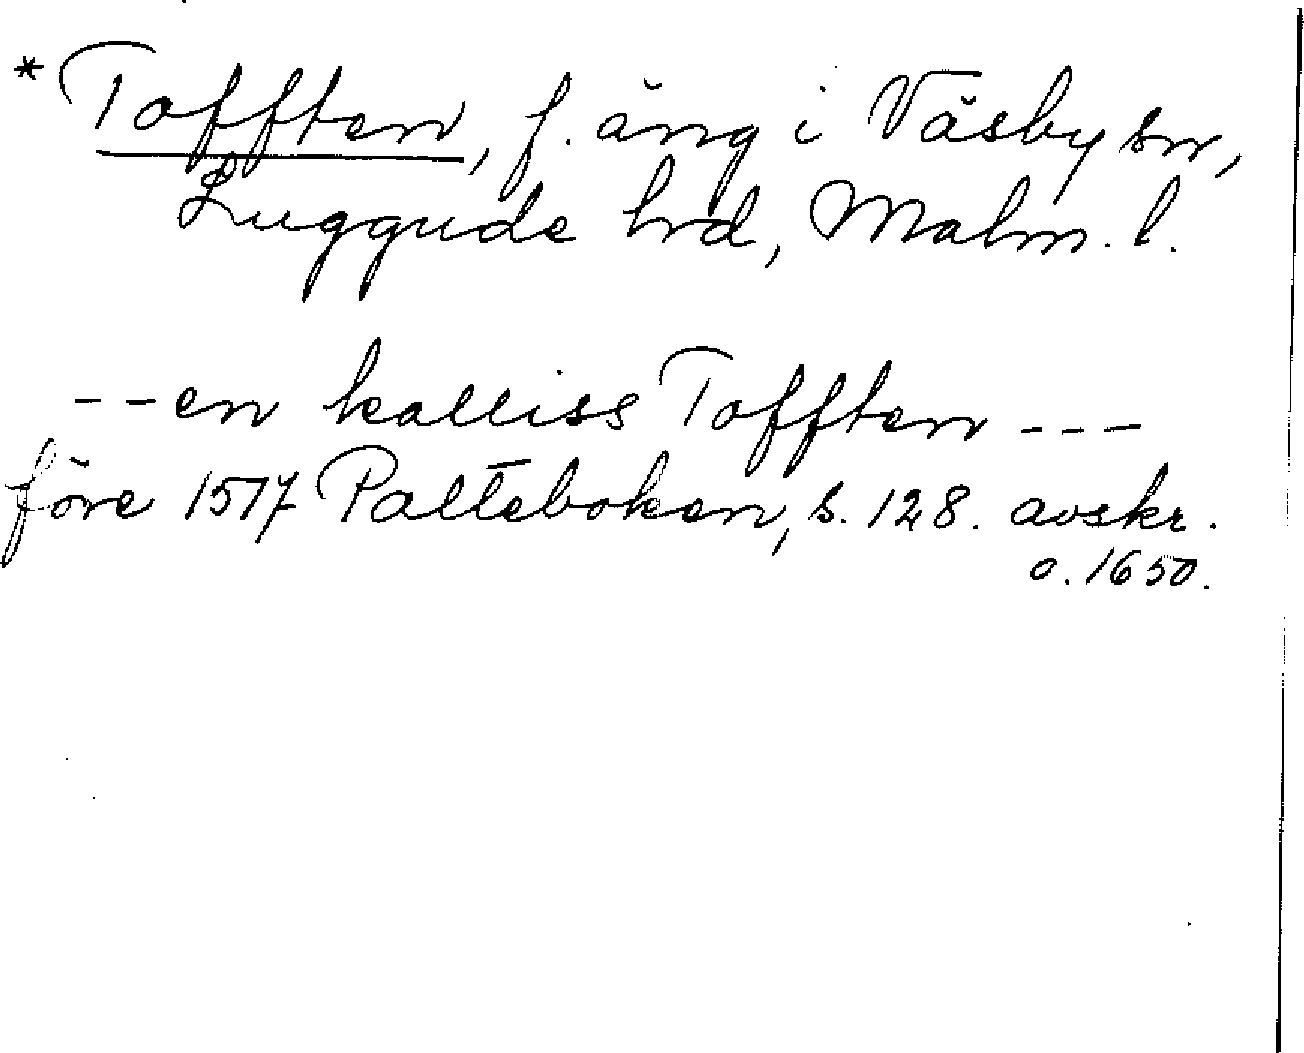 * Tofften, f. äng i Väsby sn,
Luggude hrd, Malm. l.
--en kalliss Tofften ---
före 1517 Palteboken, s. 128. avskr.
o. 1650.